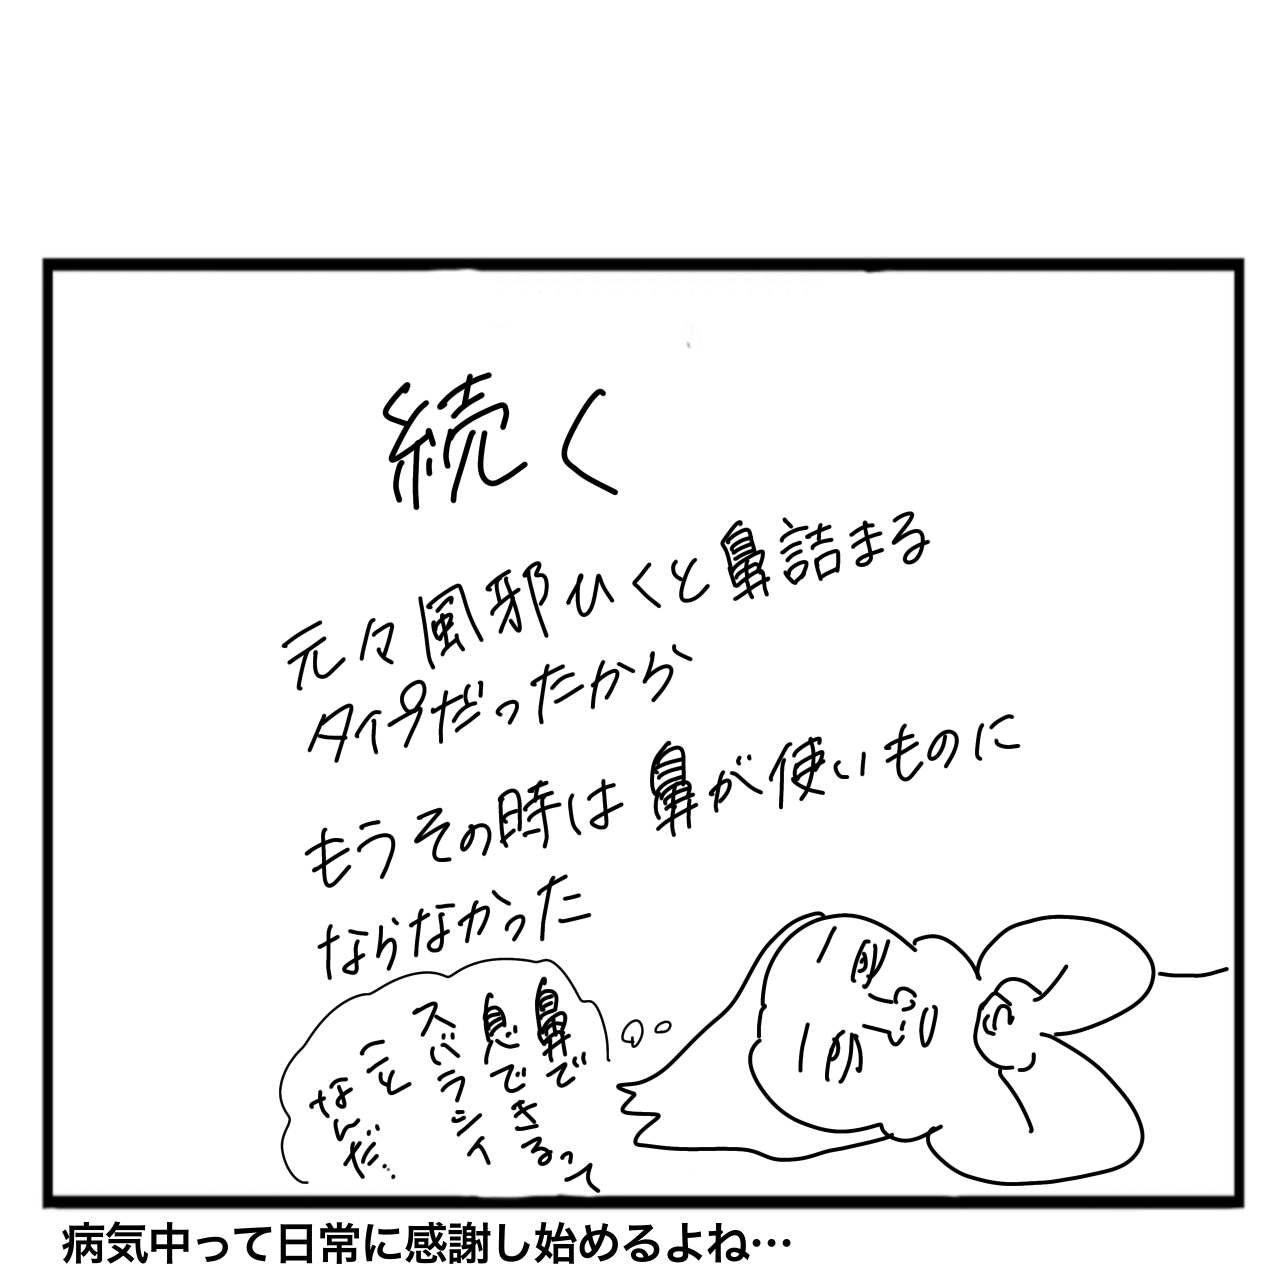 続く
元々風邪ひくと鼻詰まる
タイプだったから
もうその時は鼻が使いものに
ならなかった
鼻で
息できるって
スバラシイ
こと
なんだ…
病気中って日常に感謝し始めるよね…